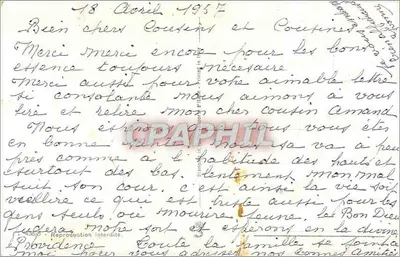 18 Avril 1957
Bien chers Cousins et Cousines
Merci merci encore pour les bons
essence toujours nécessaire
Merci aussi pour votre aimable lettre
si consolante nous aimons à vous
lire et relire mon cher cousin Amand
Nous espérons que tous vous êtes
en bonne santé sa va à peu
près comme a l habitude des hauts et
surtout des bas. lentement mon mal
suit son cour. c'est ainsi la vie soit
vieillere ce qui est triste aussi pour les
gens seuls ou mourire jeune. le Bon Dieu
notre sort et espérons en la divine
Providence Toute la famille se joint à
moi pour vous adresser nos bonnes Amitiés
Reproduction interdite
CPAPHIL